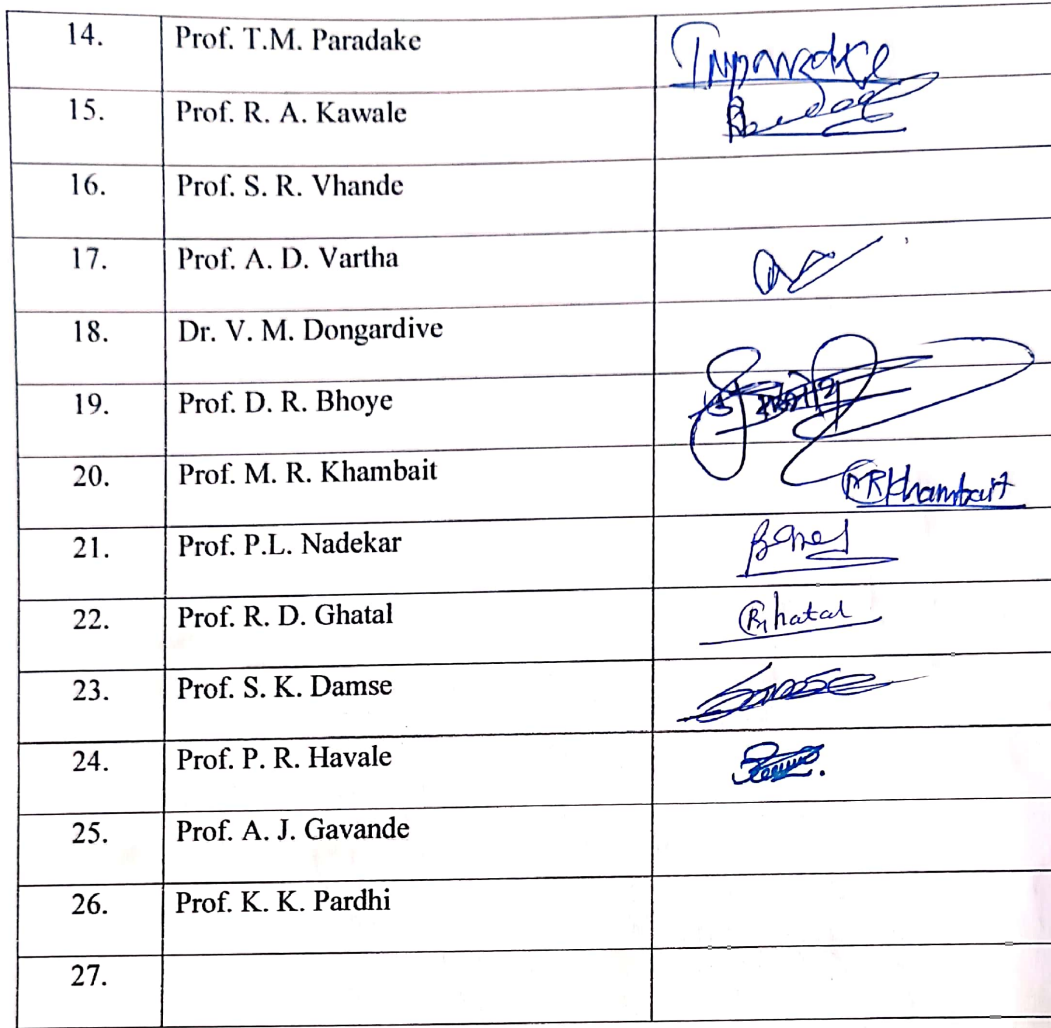 14. Prof. T.M. Paradake TMParadke
15. Prof. R. A. Kawale
16. Prof. S. R. Vhande
17. Prof. A. D. Vartha
18. Dr. V. M. Dongardive
19. Prof. D. R. Bhoye
20. Prof. M. R. Khambait MRKhambait
21. Prof. P.L. Nadekar
22. Prof. R. D. Ghatal RGhatal
23. Prof. S. K. Damse
24. Prof. P. R. Havale
25. Prof. A. J. Gavande
26. Prof. K. K. Pardhi
27.